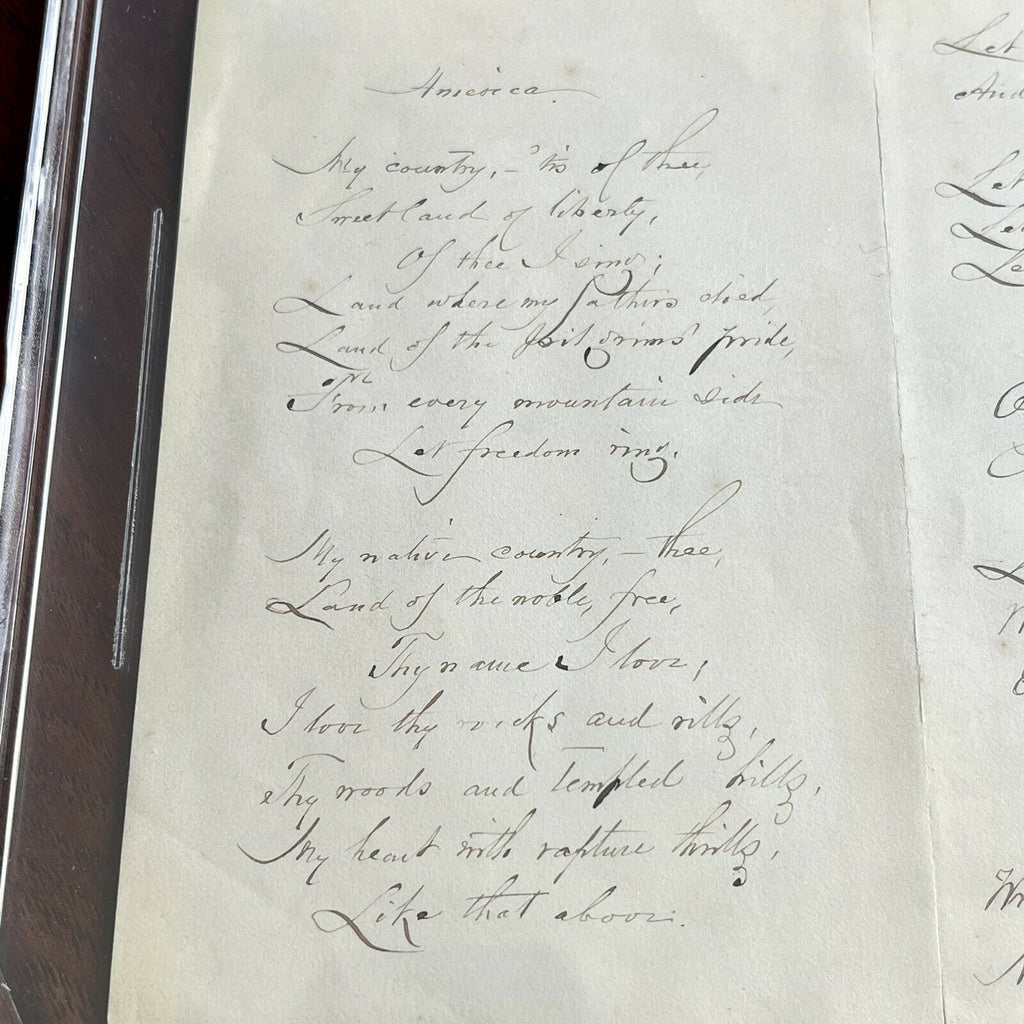 America.
My country, – 'tis of thee,
Sweet land of liberty,
Of thee I sing;
Land where my fathers died,
Land of the pilgrims' pride,
From every mountain side
Let freedom ring.
My native country, – thee,
Land of the noble, free,
Thy name I love;
I love thy rocks and rills,
Thy woods and templed hills,
My heart with rapture thrills,
Like that above.
Let
And
Let
Let
Le